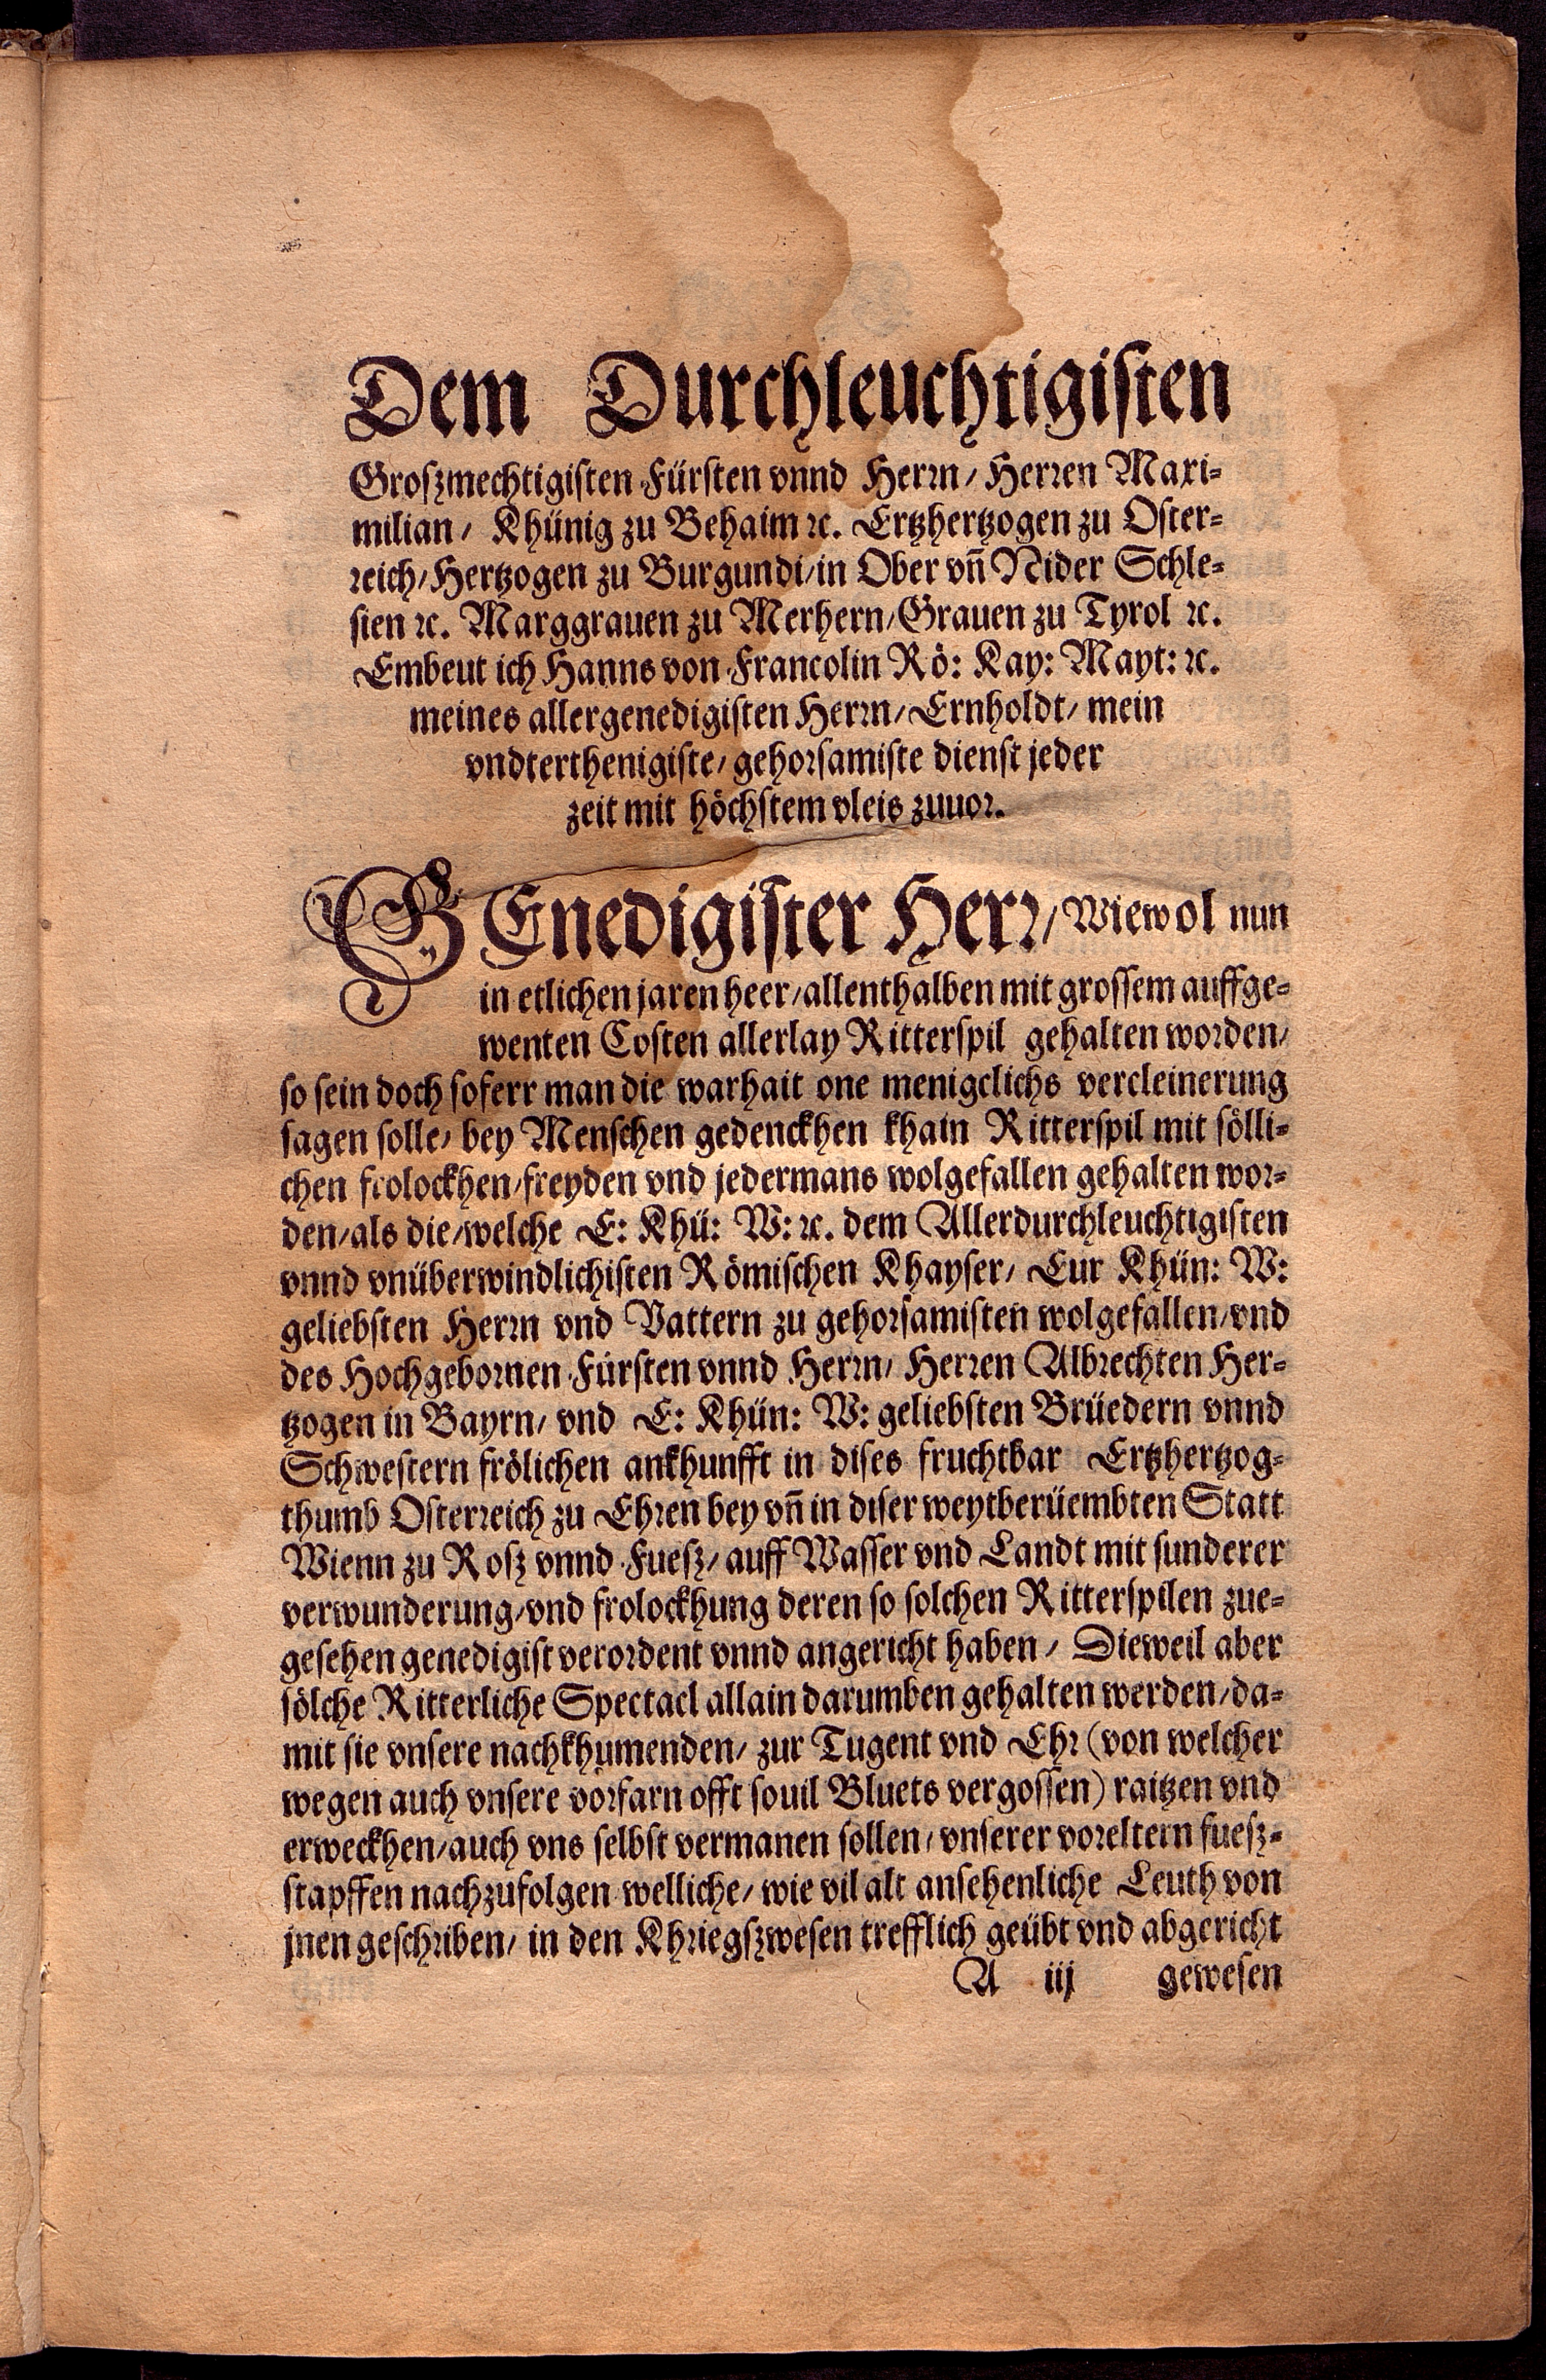 Dem Durchleuchtigisten
Groszmechtigisten Fürsten vnnd Herrn/ Herren Maxi-
milian/ Khünig zu Behaim ꝛc. Ertzhertzogen zu Oster-
reich/ Hertzogen zu Burgundi/ in Ober vñ Nider Schle-
sien ꝛc. Marggrauen zu Merhern/ Grauen zu Tyrol ꝛc.
Embeut ich Hanns von Francolin Rö: Kay: Mayt: ꝛc.
meines allergenedigisten Herrn/ Ernholdt/ mein
vndterthenigiste/ gehorsamiste dienst jeder
zeit mit höchstem vleis zuuor.
GEnedigister Herr/ Wiewol nun
in etlichen jaren heer/ allenthalben mit grossem auffge-
wenten Costen allerlay Ritterspil gehalten worden/
so sein doch soferr man die warhait one menigclichs vercleinerung
sagen solle/ bey Menschen gedenckhen khain Ritterspil mit sölli-
chen frolockhen/ freyden vnd jedermans wolgefallen gehalten wor-
den/ als die/ welche E: Khü: W: ꝛc. dem Allerdurchleuchtigisten
vnnd vnüberwindlichisten Römischen Khayser/ Eur Khün: W:
geliebsten Herrn vnd Vattern zu gehorsamisten wolgefallen/ vnd
des Hochgebornen Fürsten vnnd Herrn/ Herren Albrechten Her-
tzogen in Bayrn/ vnd E: Khün: W: geliebsten Brüedern vnnd
Schwestern frölichen ankhunfft in dises fruchtbar Ertzhertzog-
thumb Osterreich zu Ehren bey vñ in diser weytberüembten Statt
Wienn zu Rosz vnnd Fuesz/ auff Wasser vnd Landt mit sunderer
verwunderung/ vnd frolockhung deren so solchen Ritterspilen zue-
gesehen genedigist verordent vnnd angericht haben/ Dieweil aber
sölche Ritterliche Spectacl allain darumben gehalten werden/ da-
mit sie vnsere nachkhumenden/ zur Tugent vnd Ehr (von welcher
wegen auch vnsere vorfarn offt souil Bluets vergossen) raitzen vnd
erweckhen/ auch vns selbst vermanen sollen/ vnserer voreltern fuesz-
stapffen nachzufolgen welliche/ wie vil alt ansehenliche Leuth von
jnen geschriben/ in den Khriegszwesen trefflich geübt vnd abgericht
A iij gewesen